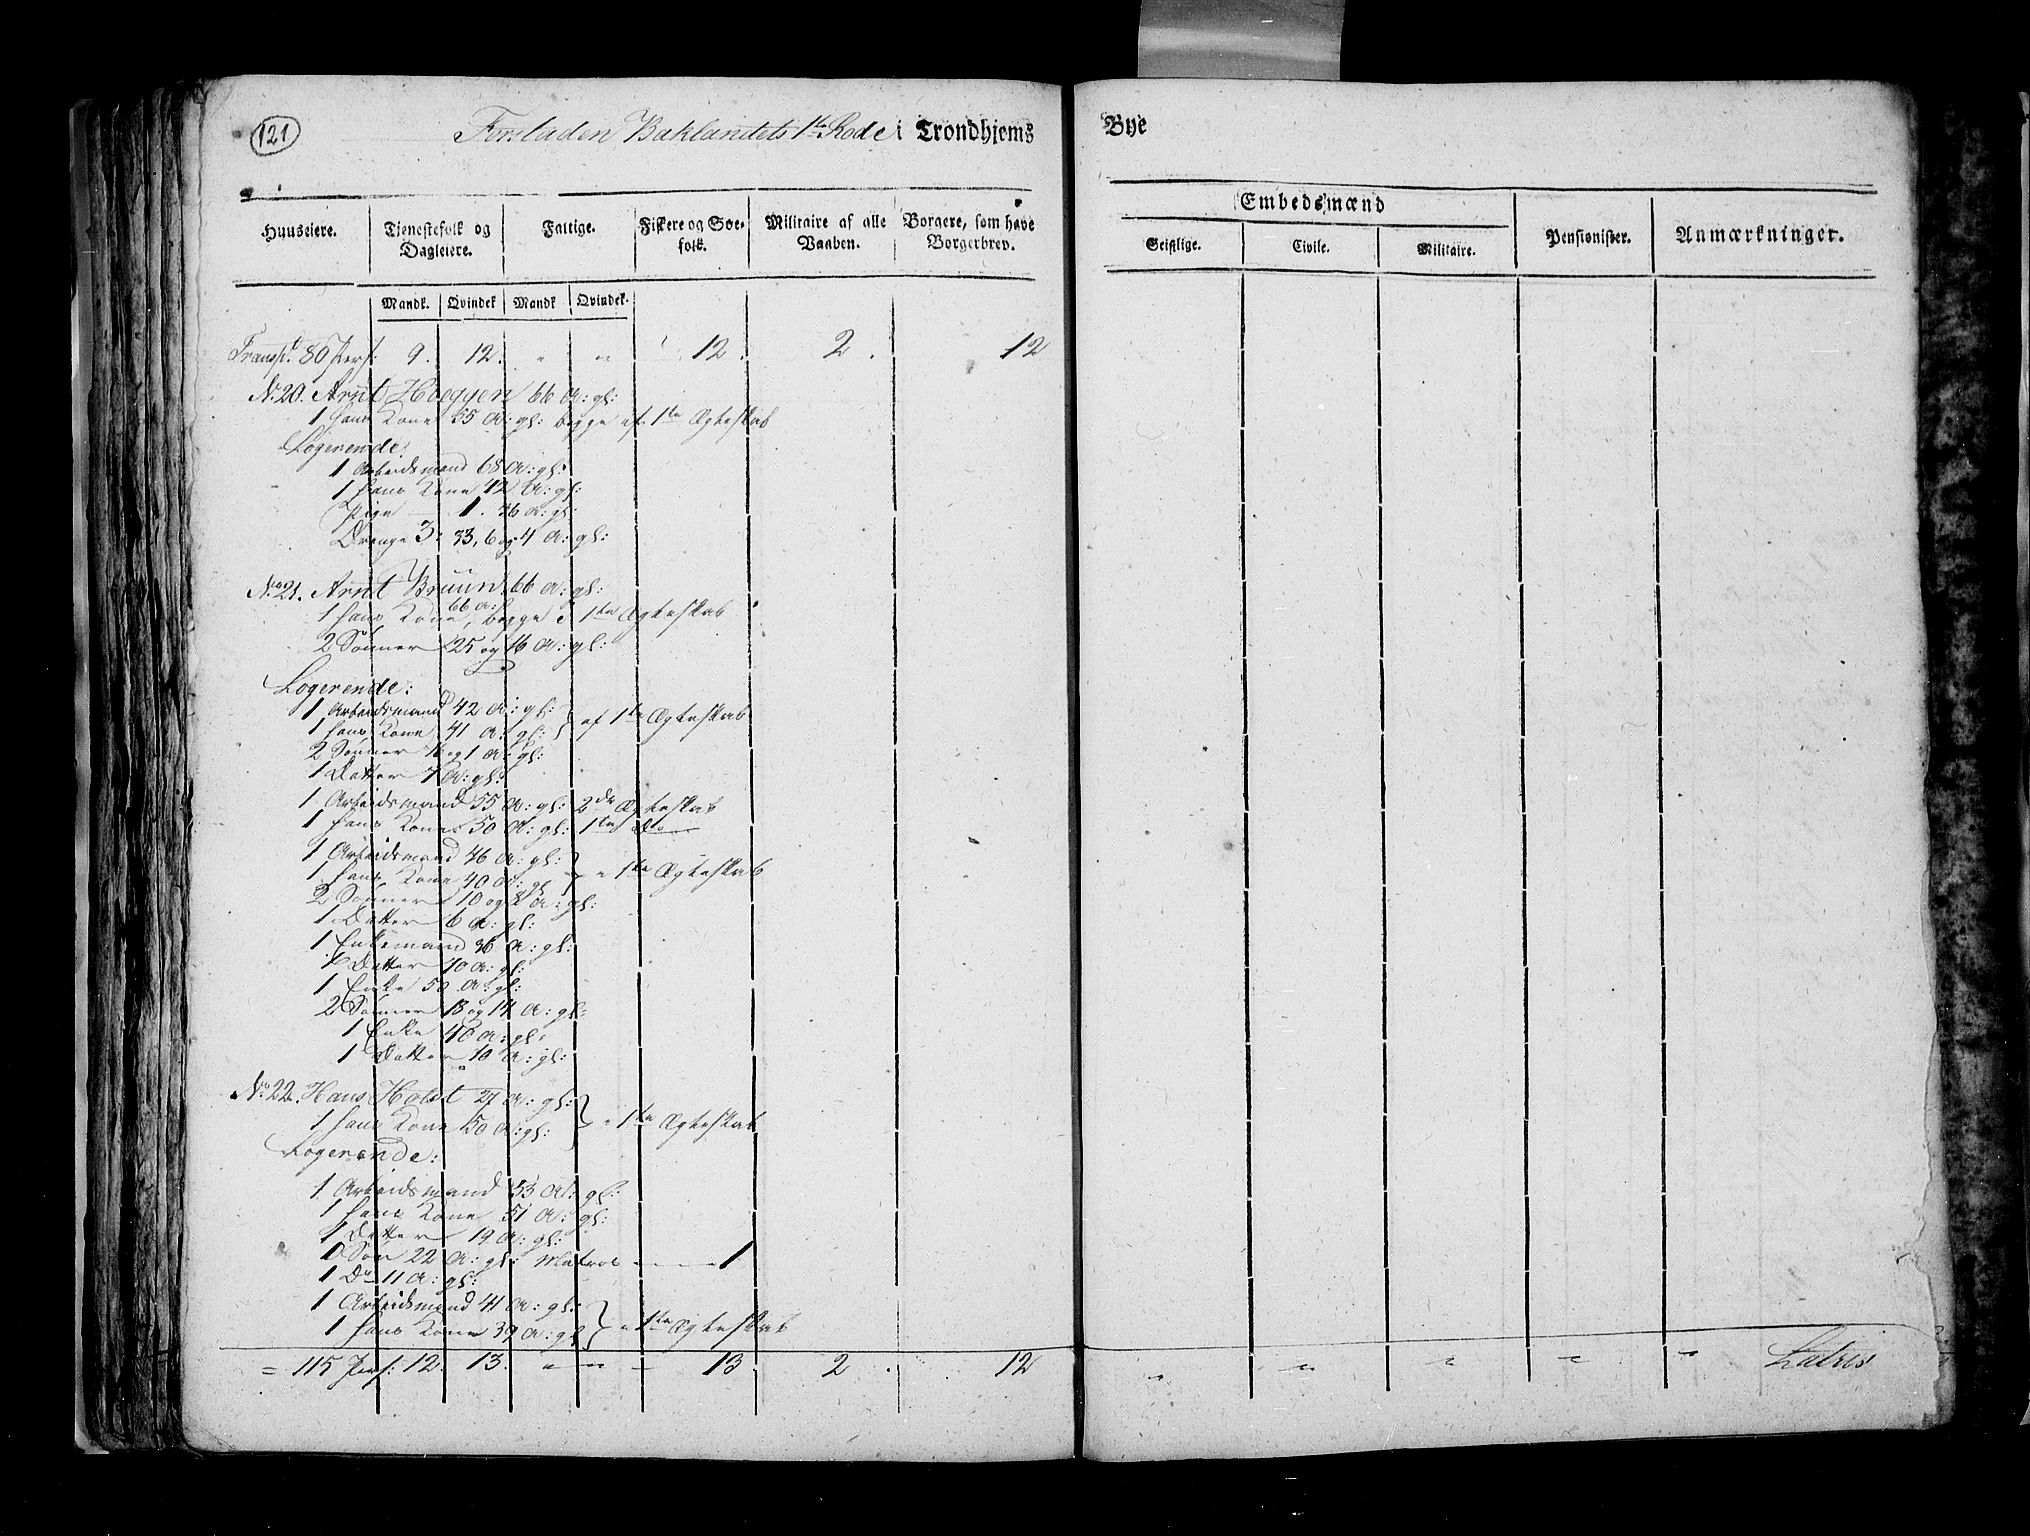 121
Forstaden Baklandets 1te Rode i Trondhjems Bye
Huuseiere. Tjenestefolk og Dagleiere. Fattige. Fiskere og Søefolk. Militaire af alle Vaaben. Borgere, som have Borgerbrev. Embedsmænd Pensionister. Anmærkninger.
Geistlige. Civile. Militaire.
Mandk. Qvindek Mandk Qvindek.
Transpt. 80 Pers: 9. 12. " " 12. 2. 12
No. 20. Arnt Hoeggen 66 A: gl:
1 hans Kone 55 A: gl: begge af 1te Ægteskab
Logerende:
1 Arbeidsmand 68 A: gl:
1 hans Kone 42 A: gl:
Pige 1. 36 A: gl:
Drenge 3: 33, 6 og 4 A: gl:
No. 21. Arnt Bruun 66 A: gl:
1 hans Kone, 66 a: begge i 1te Ægteskab
2 Sønner 25 og 16 A: gl:
Logerende:
1 Arbeidsmand 42 A: gl: } af 1te Ægteskab
1 hans Kone 41 A: gl: }
2 Sønner og 1 A: gl:
1 Datter 7 A: gl:
1 Arbeidsmand 55 A: gl: 2de Ægteskab
1 hans Kone 50 A: gl: 1te Do
1 Arbeidsmand 46 A: gl: } " 1te Ægteskab
1 hans Kone 40 A: gl }
2 Sønner 10 og A: gl:
1 Datter 6 A: gl:
1 Enkemand 36 A: gl:
1 Datter 10 A: gl:
1 Enke 50 A: gl:
2 Sønner 18 og 14 A: gl:
1 Enke 46 A: gl:
1 Datter 10 A: gl:
No. 22. Hans Holst 27 A: gl: } " 1te Ægteskab
1 hans Kone 50 A: gl: }
Logerende:
1 Arbeidsmand 53 A: gl:
1 hans Kone 51 A: gl:
1 Datter 19 A: gl:
0 Søn 22 A: gl: Matros 1
1 Do 11 A: gl:
1 Arbeidsmand 41 A: gl: } " 1te Ægteskab
1 hans Kone 39 A: gl }
= 115 Pers: 12. 13. " " 13. 2. 12 " " " " " Latris